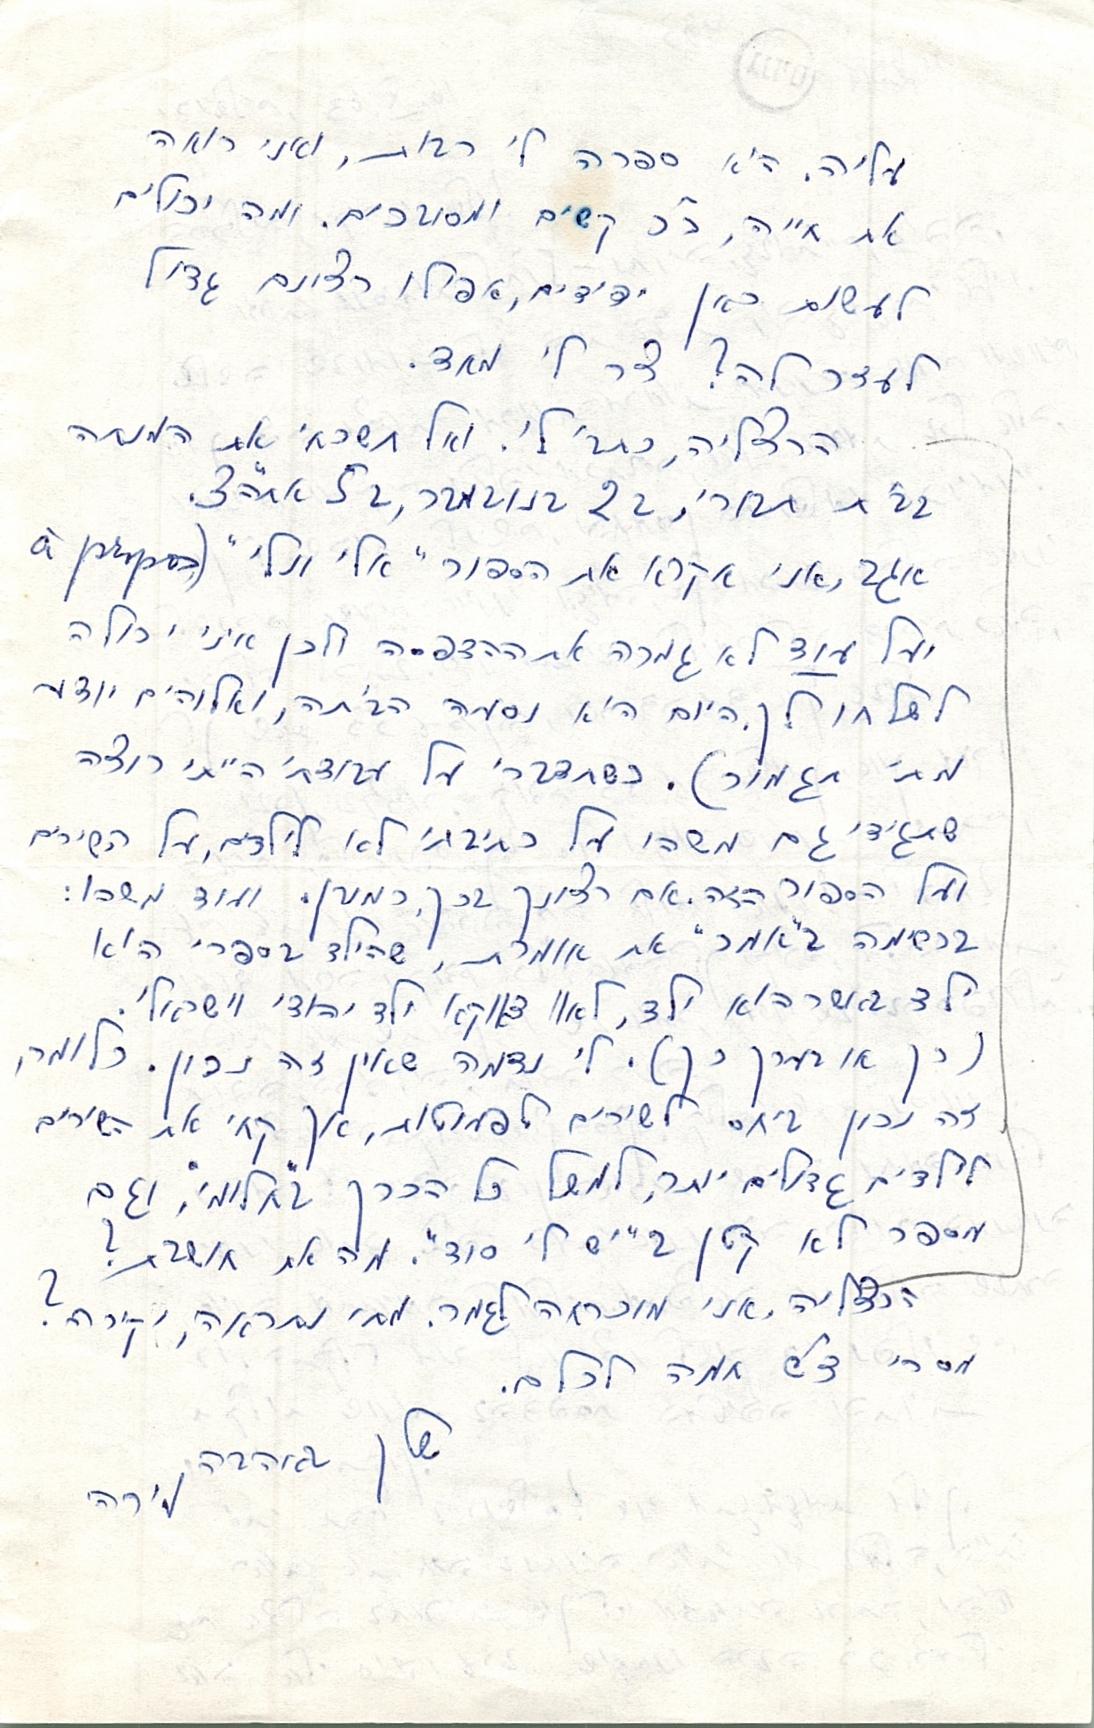 עליה. היא ספרה לי רבות, ואני רואה
את חייה, כ"כ קשים ומסובכים. ומה יכולים
לעשות כאן ידידים, אפילו רצונם גדול
לעזור לה? צר לי מאד.
הרצליה, כתבי לי. ואל תשכחי את המנחה
בבית תבורי, ב 29 בנובמבר, ב 5 אחה"צ.
אגב, אני אקרא את הספור "אלי ונלי" (à propos
יעל עוד לא גמרה את ההדפסה ולכן איני יכולה
לשלחו לך. היום היא נסעה הביתה, ואלוהים יודע
מתי תגמור). כשתדברי על עבודתי הייתי רוצה
שתגידי גם משהו על כתיבתי לא לילדים, על השירים
ועל הספור הזה. אם רצונך בכך, כמובן. ועוד משהו:
ברשימה ב"אמר" את אומרת, שהילד בספרי הוא
ילד באשר הוא ילד, לאו דווקא ילד יהודי וישראלי.
(כך או בערך כך). לי נדמה שאין זה נכון. כלומר,
זה נכון ביחס לשירים לפעוטות, אך קחי את השירים
לילדים גדולים יותר, למשל כל הכרך ב"חלומי", וגם
מספר לא קטן ב"יש לי סוד". מה את חושבת?
הרצליה, אני מוכרחה לגמר. מתי נתראה, יקירה?
מסרי ד"ש חמה לכלם.
שלך באהבה
מירה